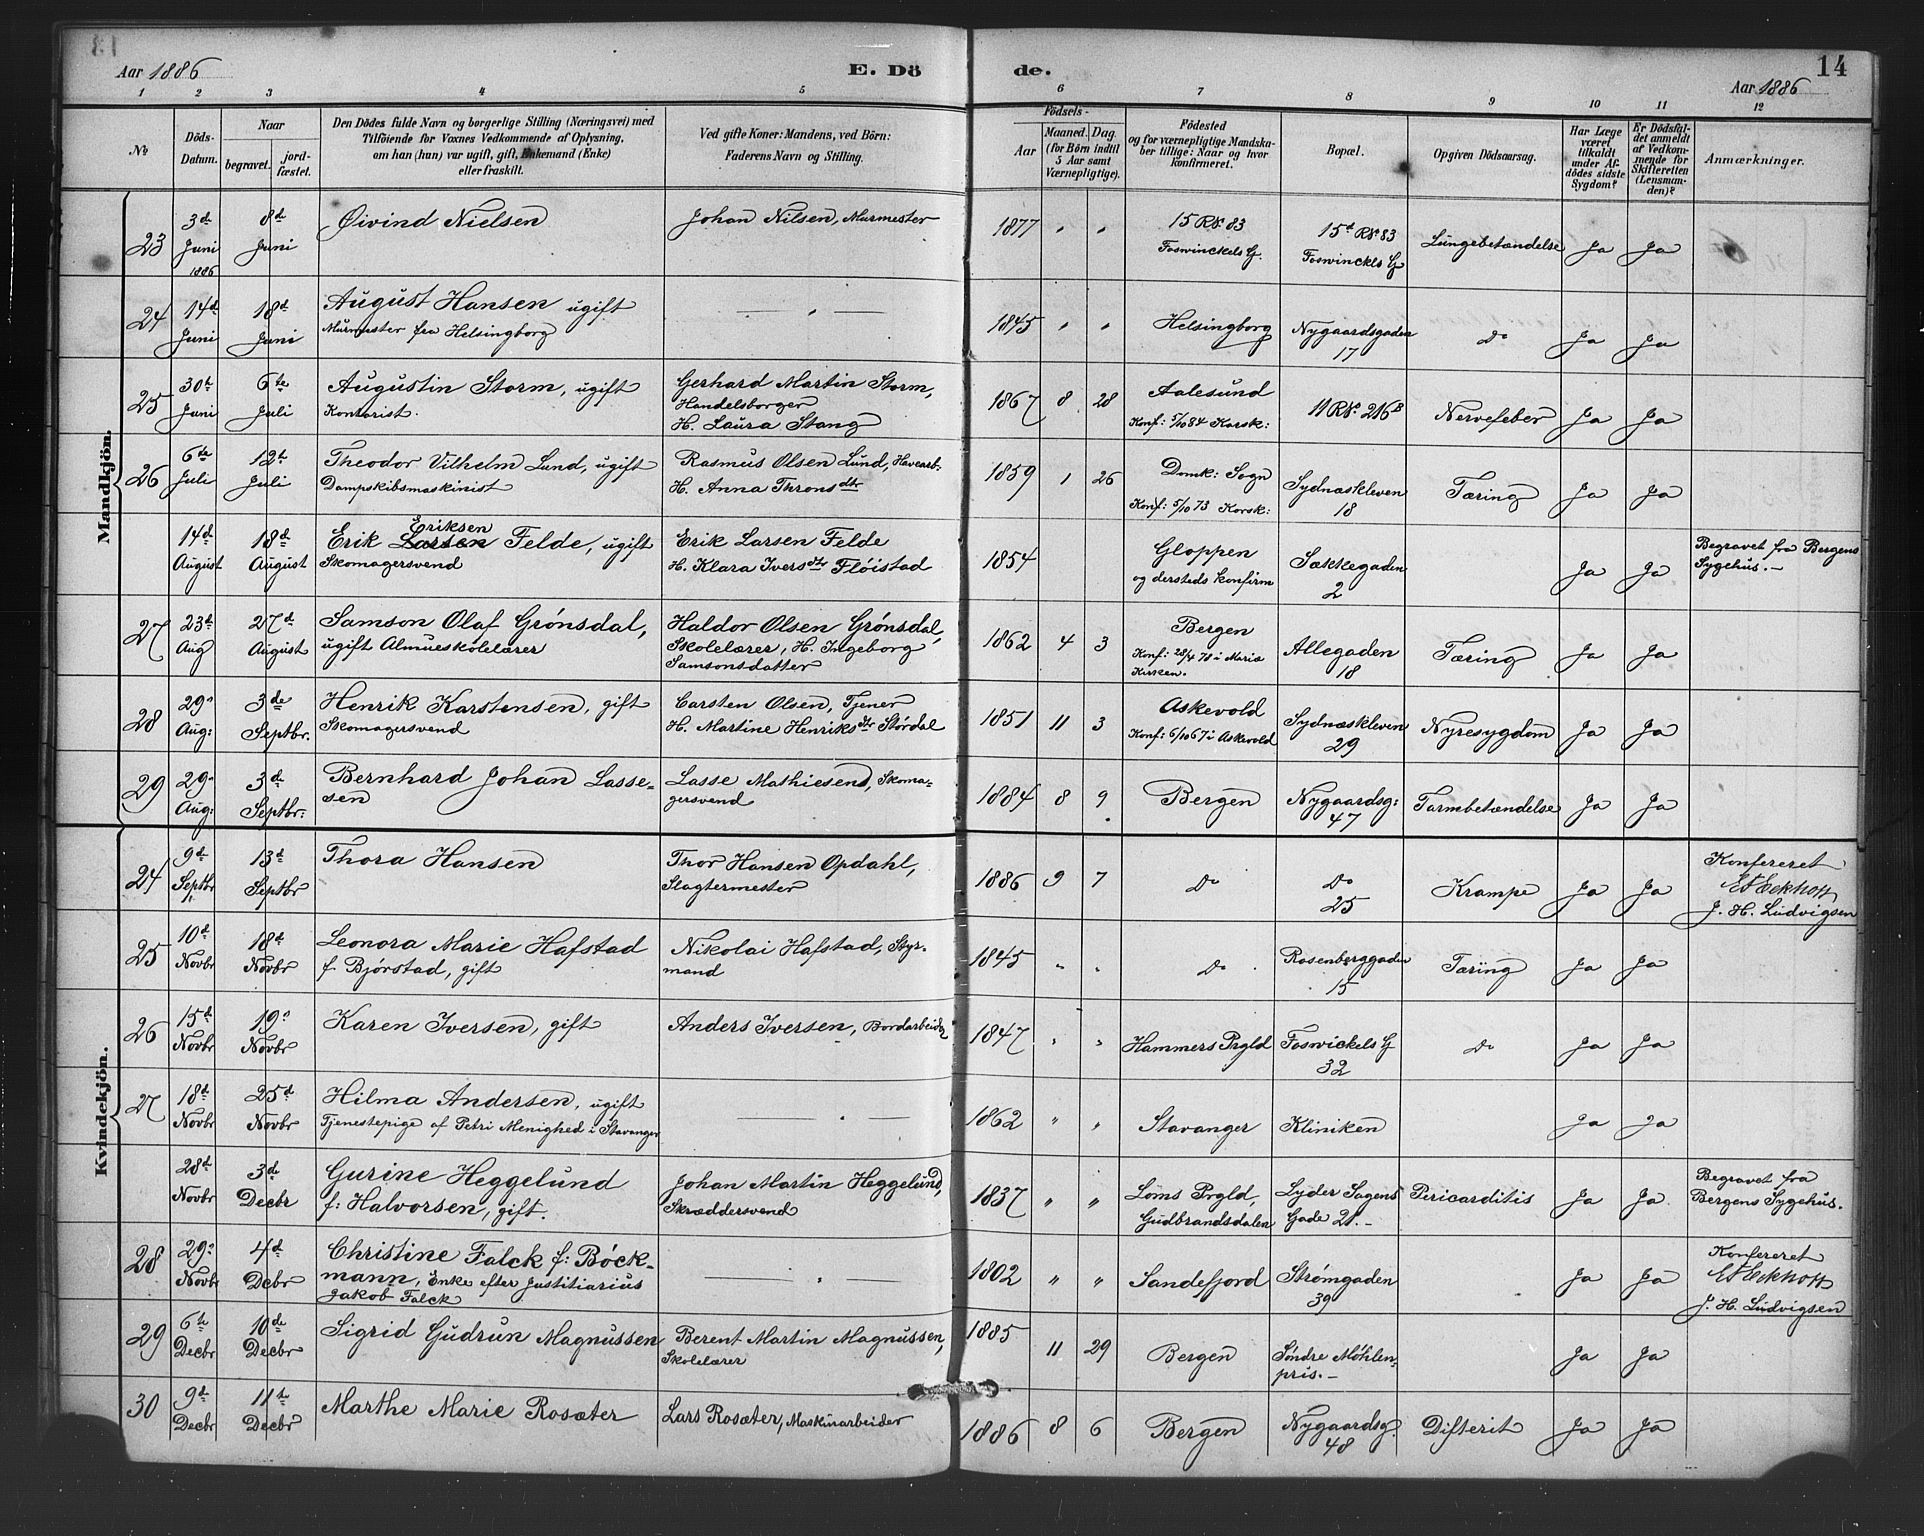 Aar 1886 E. Dö de. 14
Aar 1886
1 2 3 4 5 6 7 8 9 10 11 12
No
Döds-Datum.
Naar
begravet. jordfæstet.
Den Dödes fulde Navn og borgerlige Stilling (Næringsvei) med
Tilföiende for Voxnes Vedkommende af Oplysning,
om han (hun) var ugift, gift, Enkemand (Enke)
eller fraskilt.
Ved gifte Koner: Mandens, ved Börn:
Faderens Navn og Stilling.
Födsels-
Aar
Maaned. Dag.
(for Börn indtil
5 Aar samt
Værnepligtige).
Födested
og for værnepligtige Mandska-
ber tillige: Naar og hvor
konfirmeret.
Bopæl.
Opgiven Dödsaarsag.
Har Læge
været
tilkaldt
under Af-
dödes sidste
Sygdom?
Er Dödsfal-
det anmeldt
af Vedkom-
mende for
Skifteretten
(Lensman-
den)?
Anmærkninger.
Mandkjön.
23 3d Juni 1886 8d Juni Øivind Nielsen Johan Nilsen, Murmester 1877 " " 15 RNo 83 Foswinckels G. 15d RNo 83 Foswinckls G Lungebetændelse Ja Ja
24 14d Juni 18d Juni August Hansen ugift
Murmester fra Helsingborg — " — 1845 " " Helsingborg Nygaardsgaden 17 Do Ja Ja
25 30t Juni 6te Juli Augustin Storm, ugift
Kontorist. Gerhard Martin Storm,
Handelsborger
H. Laura Stang 1867 8 28 Aalesund
Konf: 5/10 84 Korsk: 11 RNo. 216B Nervefeber Ja Ja
26 6te Juli 12t Juli Theodor Vilhelm Lund, ugift
Dampskibsmaskinist Rasmus Olsen Lund, Havearb.
H. Anna Thronsdtr 1859 1 26 Domk: Sogn
Konf: 5/10 73 Korsk: Sydnæskleven 18 Tæring Ja Ja
14d August 18d August Erik Larsen Eriksen Felde, ugift
Skomagersvend Erik Larsen Felde
H. Klara Iversdtr Flöistad 1854 Gloppen
og dersteds konfirm Sækkegaden 2 Ja Ja Begravet fra Bergens
Sygehus. —
27 23d Aug 27d August Samson Olaf Grönsdal,
ugift Almueskolelærer Haldor Olsen Grönsdal,
Skolelærer, H. Ingeborg
Samsonsdatter 1862 4 3 Bergen
Konf: 28/4 78 i Maria
Kirken. Allegaden 18 Tæring Ja Ja
28 29" Aug: 3de Septbr. Henrik Karstensen, gift
Skomagersvend Carsten Olsen, Tjener
H. Martine Henriksdtr Stördal 1851 11 3 Askevold
Konf: 6/10 67 i Askevold Sydnæskleven 29 Nyresygdom Ja Ja
29 29" Aug: 3d Septbr: Bernhard Johan Lasse-
sen Lasse Mathiesen, Skoma-
gersvend 1884 8 9 Bergen Nygaardsg: 47 Tarmbetændelse Ja Ja
Kvindekjön.
24 9d Septbr 13d Septbr Thora Hansen Thor Hansen Opdahl,
Slagtermester 1886 9 7 Do Do 25 Krampe Ja Ja Konfereret
Eckhoff
J. H. Ludvigsen
25 10d Novbr 18d Novbr Leonora Marie Hafstad
f Bjørstad, gift Nikolai Hafstad, Styr-
mand 1845 " " Do Rosenberggaden 15 Tæring Ja Ja
26 15d Novbr 19" Novbr Karen Iversen, gift Anders Iversen, Bordarbeider 1847 " " Hammers Prgld Foswickels G 32 Do Ja Ja
27 18d Novbr 25d Novbr Hilma Andersen, ugift
Tjenestepige af Petri Menighed i Stavanger — " — 1862 " " Stavanger Kliniken Ja Ja
28d Novbr 3de Decbr Gurine Heggelund
f: Halvorsen, gift. Johan Martin Heggelund,
Skræddersvend 1837 " " Loms Prgld,
Gudbrandsdalen Lyder Sagens
Gade 21. — Pericarditis Ja Ja Begravet fra
Bergens Sygehus.
28 29" Novbr 4d Dcbr Christine Falck f: Böck-
mann, Enke efter Justitiarius
Jakob Falck — " — 1802 " " Sandefjord Strømgaden 39 Ja Ja Konfereret
Eckhoff
J. H. Ludvigsen
29 6te Decbr 10de Decbr Sigrid Gudrun Magnussen Berent Martin Magnussen,
Skolelærer 1885 11 29 Bergen Søndre Møhlen-
pris. — Ja Ja
30 9d Decbr 11t Decbr Marthe Marie Rosæter Lars Rosæter, Maskinarbeider 1886 8 6 Bergen Nygaardsg. 48 Difterit Ja Ja